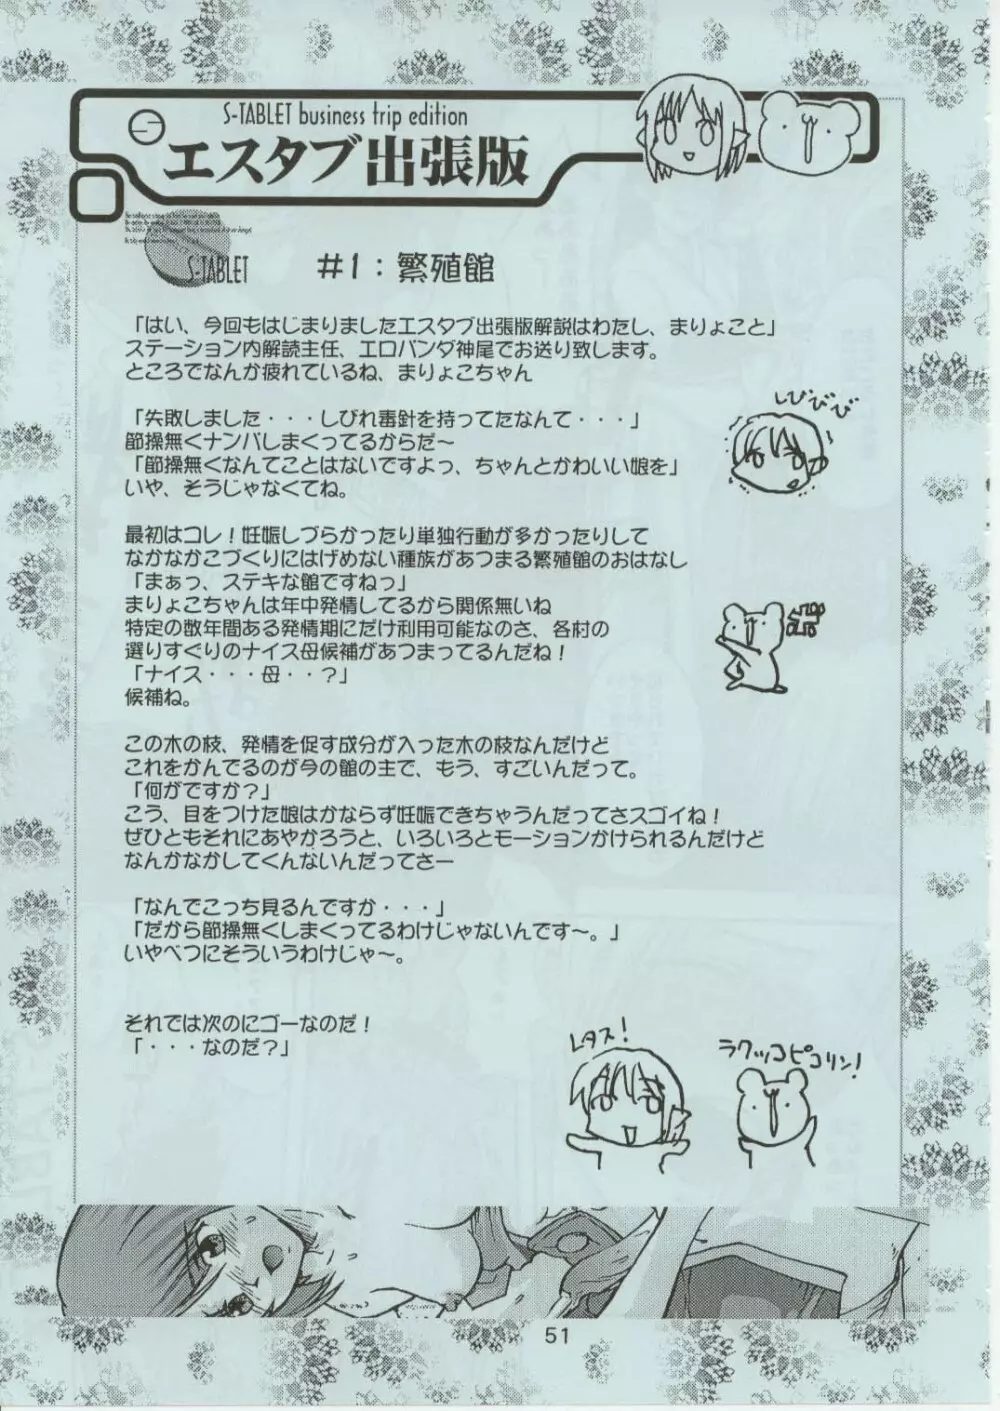 S-TABLET business trip edition
エスタブ出張版
S-TABLET
#1：繁殖館
「はい、今回もはじまりましたエスタブ出張版解説はわたし、まりょこと」
ステーション内解読主任、エロパンダ神尾でお送り致します。
ところでなんか疲れているね、まりょこちゃん
「失敗しました・・・しびれ毒針を持ってたなんて・・・」
節操無くナンパしまくってるからだ～
「節操無くなんてことはないですよっ、ちゃんとかわいい娘を」
いや、そうじゃなくてね。
しびびび
最初はコレ！妊娠しづらかったり単独行動が多かったりして
なかなかこづくりにはげめない種族があつまる繁殖館のおはなし
「まぁっ、ステキな館ですねっ」
まりょこちゃんは年中発情してるから関係無いね
特定の数年間ある発情期にだけ利用可能なのさ、各村の
選りすぐりのナイス母候補があつまってるんだね！
「ナイス・・・母・・？」
候補ね。
この木の枝、発情を促す成分が入った木の枝なんだけど
これをかんでるのが今の館の主で、もう、すごいんだって。
「何がですか？」
こう、目をつけた娘はかならず妊娠できちゃうんだってさスゴイね！
ぜひともそれにあやかろうと、いろいろとモーションかけられるんだけど
なんかなかしてくんないんだってさー
「なんでこっち見るんですか・・・」
「だから節操無くしまくってるわけじゃないんです～。」
いやべつにそういうわけじゃ～。
それでは次のにゴーなのだ！
「・・・なのだ？」
レタス！
ラクッコピコリン！
51